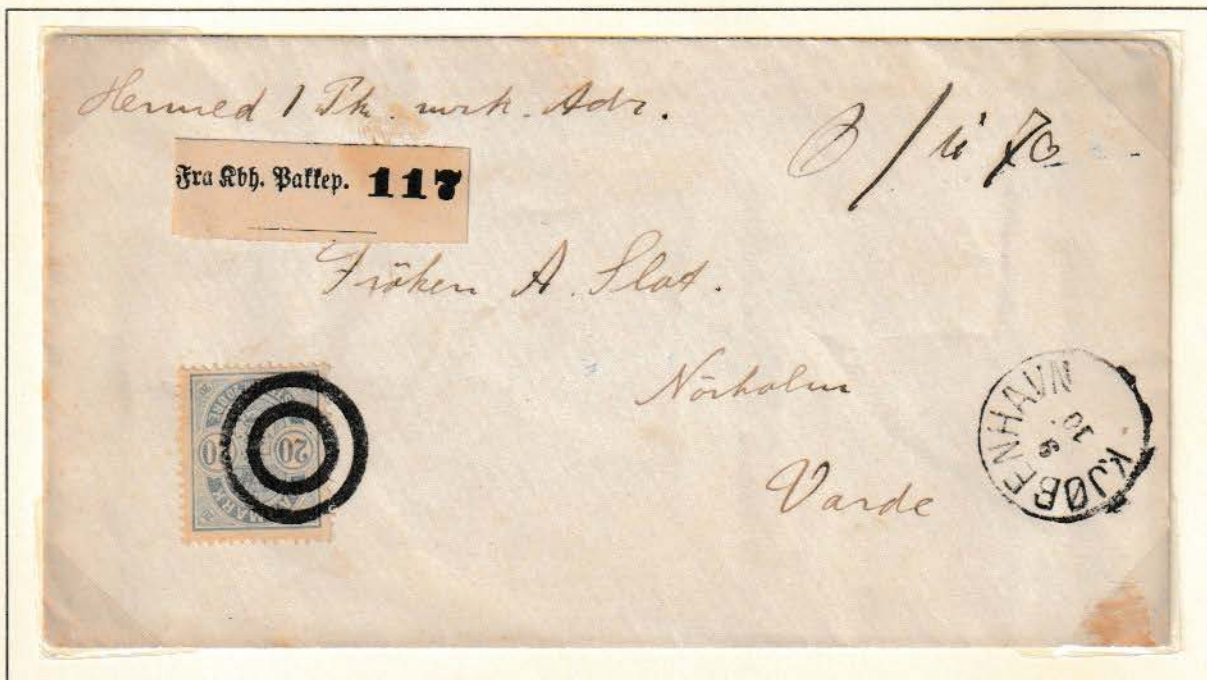 Hermed 1 Pk. mrk. Adr.
Fra Kbh. Pakkep. 117
Fröken A. Slot.
Nörholm
Varde
KJØBENHAVN
30 6
20 20